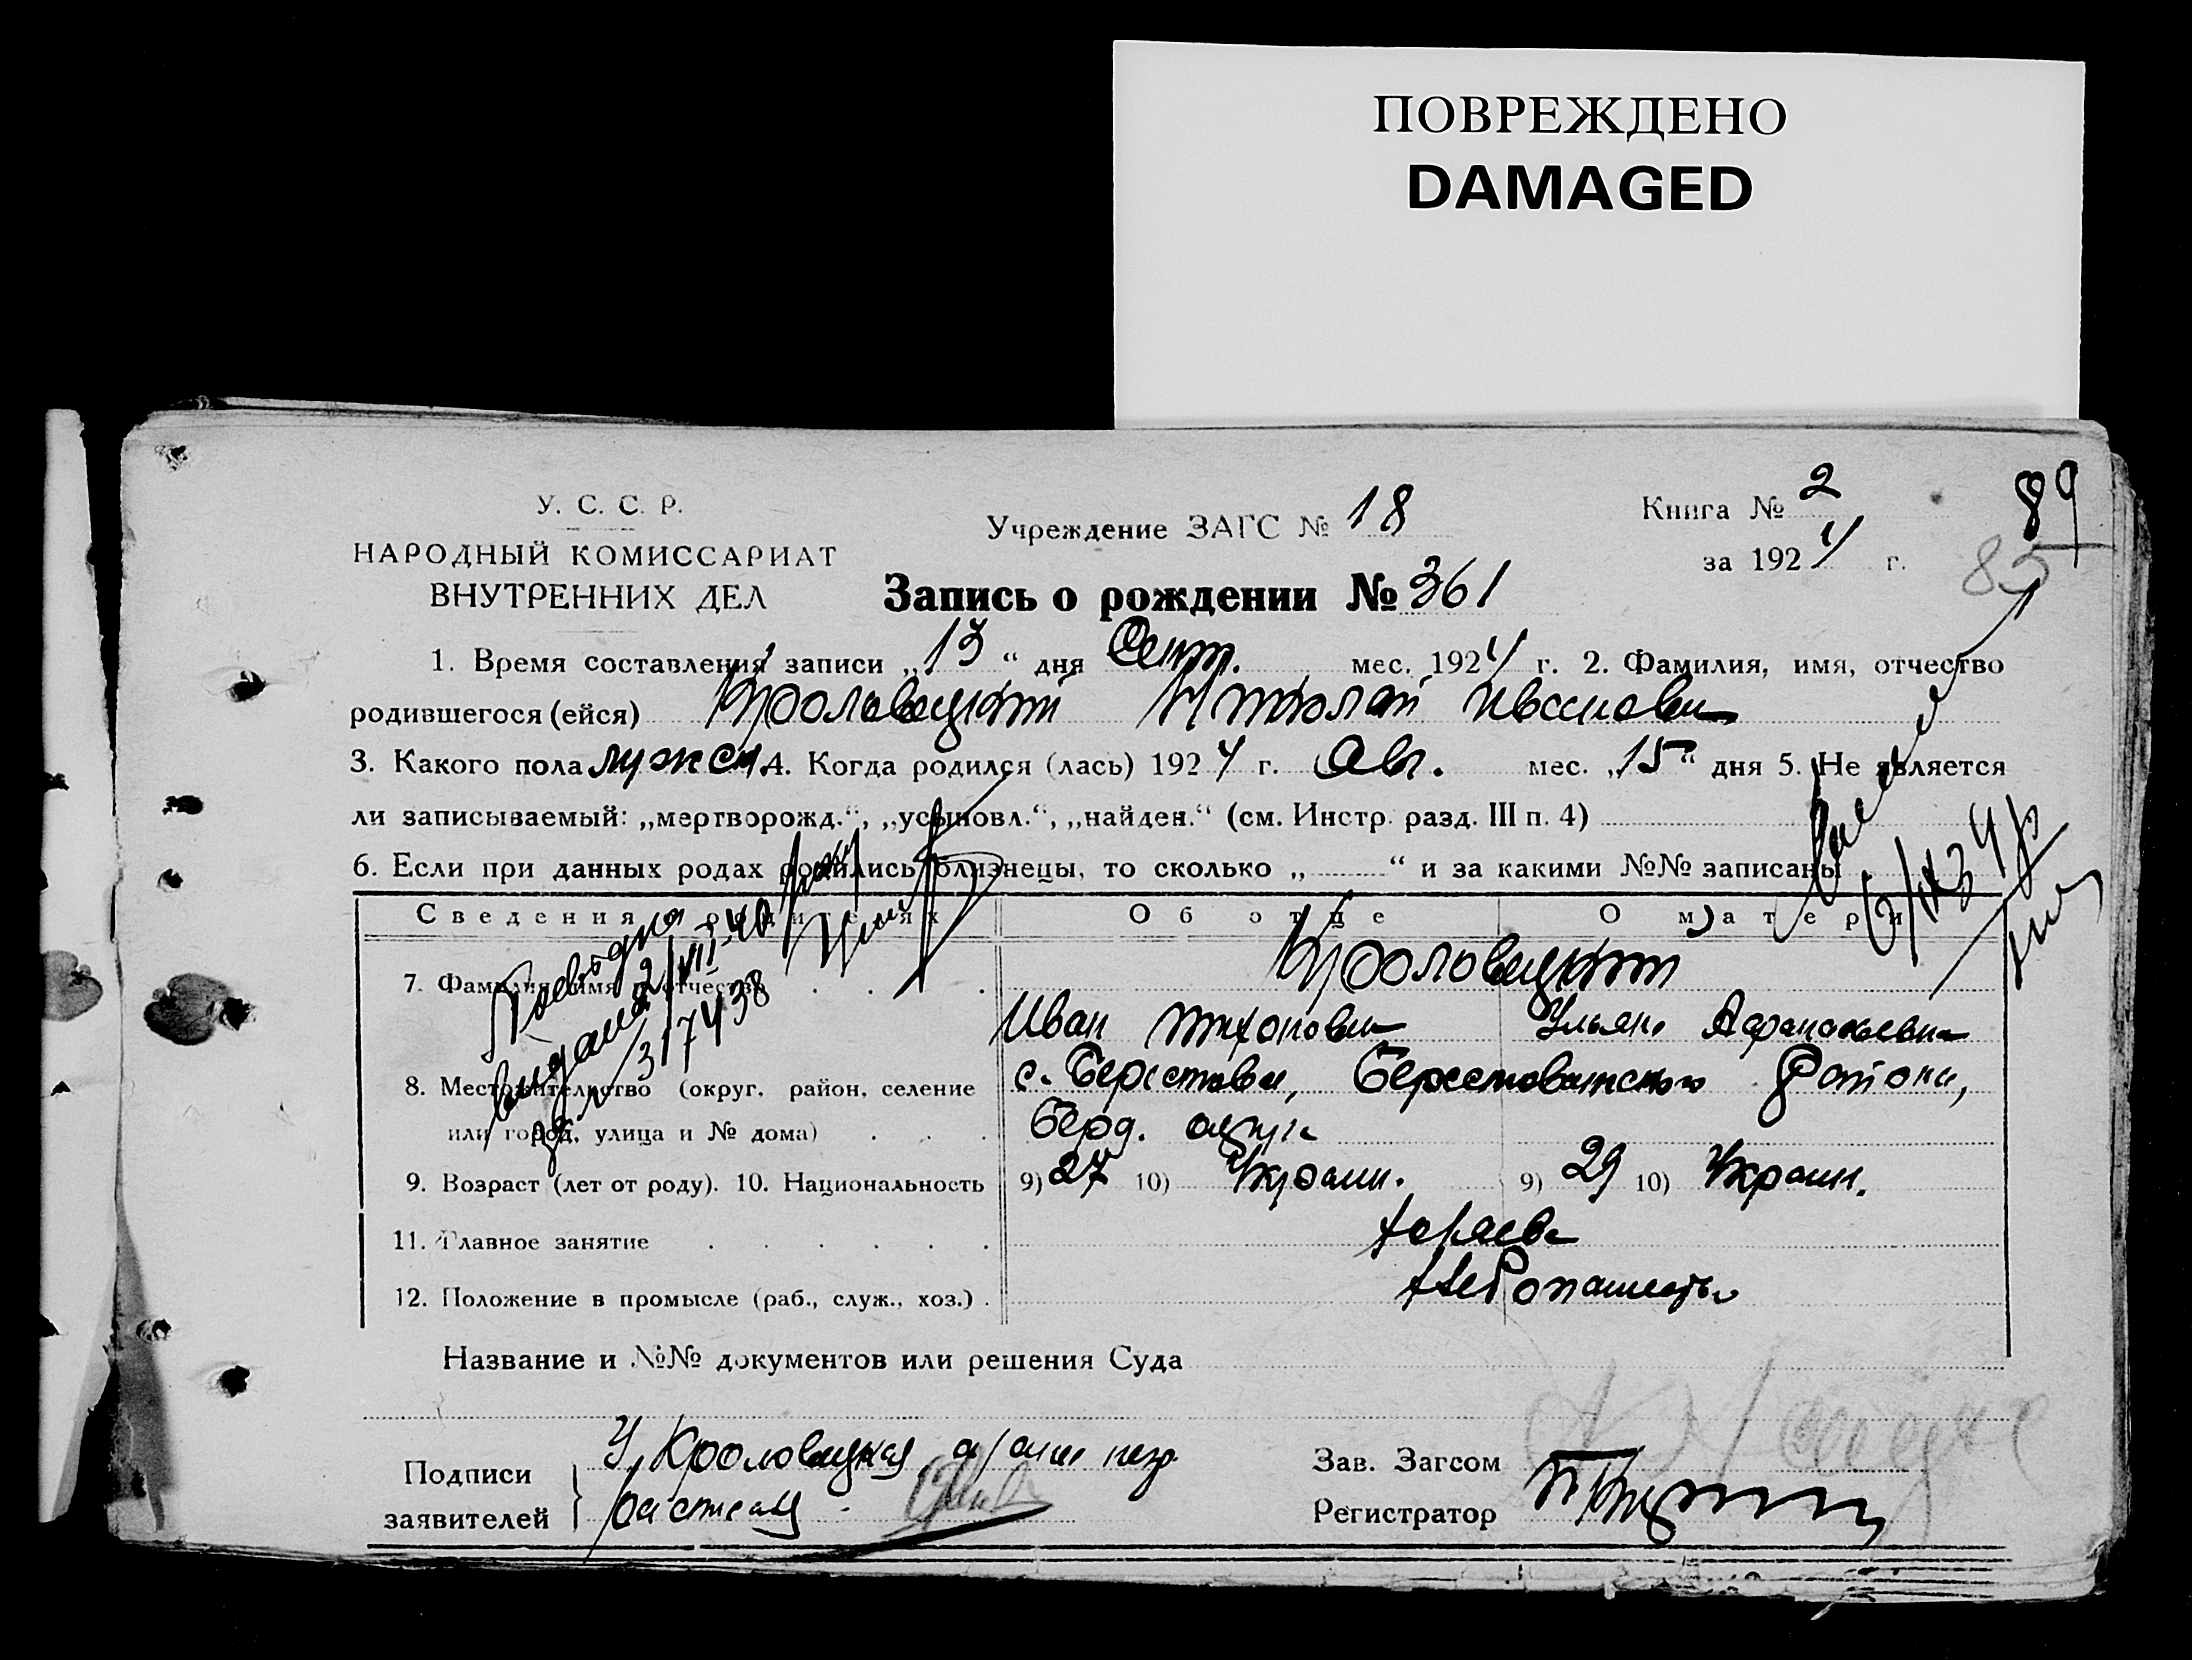 ПОВРЕЖДЕНО
DAMAGED
89
85
У. С. С. Р.
НАРОДНЫЙ КОМИССАРИАТ
ВНУТРЕННИХ ДЕЛ
Учреждение ЗАГС № 18
Книга № 2
за 1924 г.
Запись о рождении № 361
1. Время составления записи „13“ дня Сент. мес. 1924 г. 2. Фамилия, имя, отчество
родившегося (ейся) Кроловецкий Николай Иванович
3. Какого пола мужск. 4. Когда родился (лась) 1924 г. Авг. мес. „15“ дня 5. Не является
ли записываемый: „мертворожд.“, „усыновл.“, „найден.“ (см. Инстр. разд. III п. 4)
6. Если при данных родах родились близнецы, то сколько „ “ и за какими №№ записаны
Сведения о родителях Об отце О матери
7. Фамилия, имя и отчество Кроловецкий
Иван Тихонович Ульяна Афанасьевна
8. Местожительство (округ, район, селение с. Берестовое, Берестоватского Района,
или город, улица и № дома) Берд. округа
9. Возраст (лет от роду). 10. Национальность 9) 27 10) Украин. 9) 29 10) Украин.
11. Главное занятие
12. Положение в промысле (раб., служ., хоз.)
выдана 2/VII-40
317438
Название и №№ документов или решения Суда
Подписи У. Кроловецкая
заявителей
Зав. Загсом
Регистратор